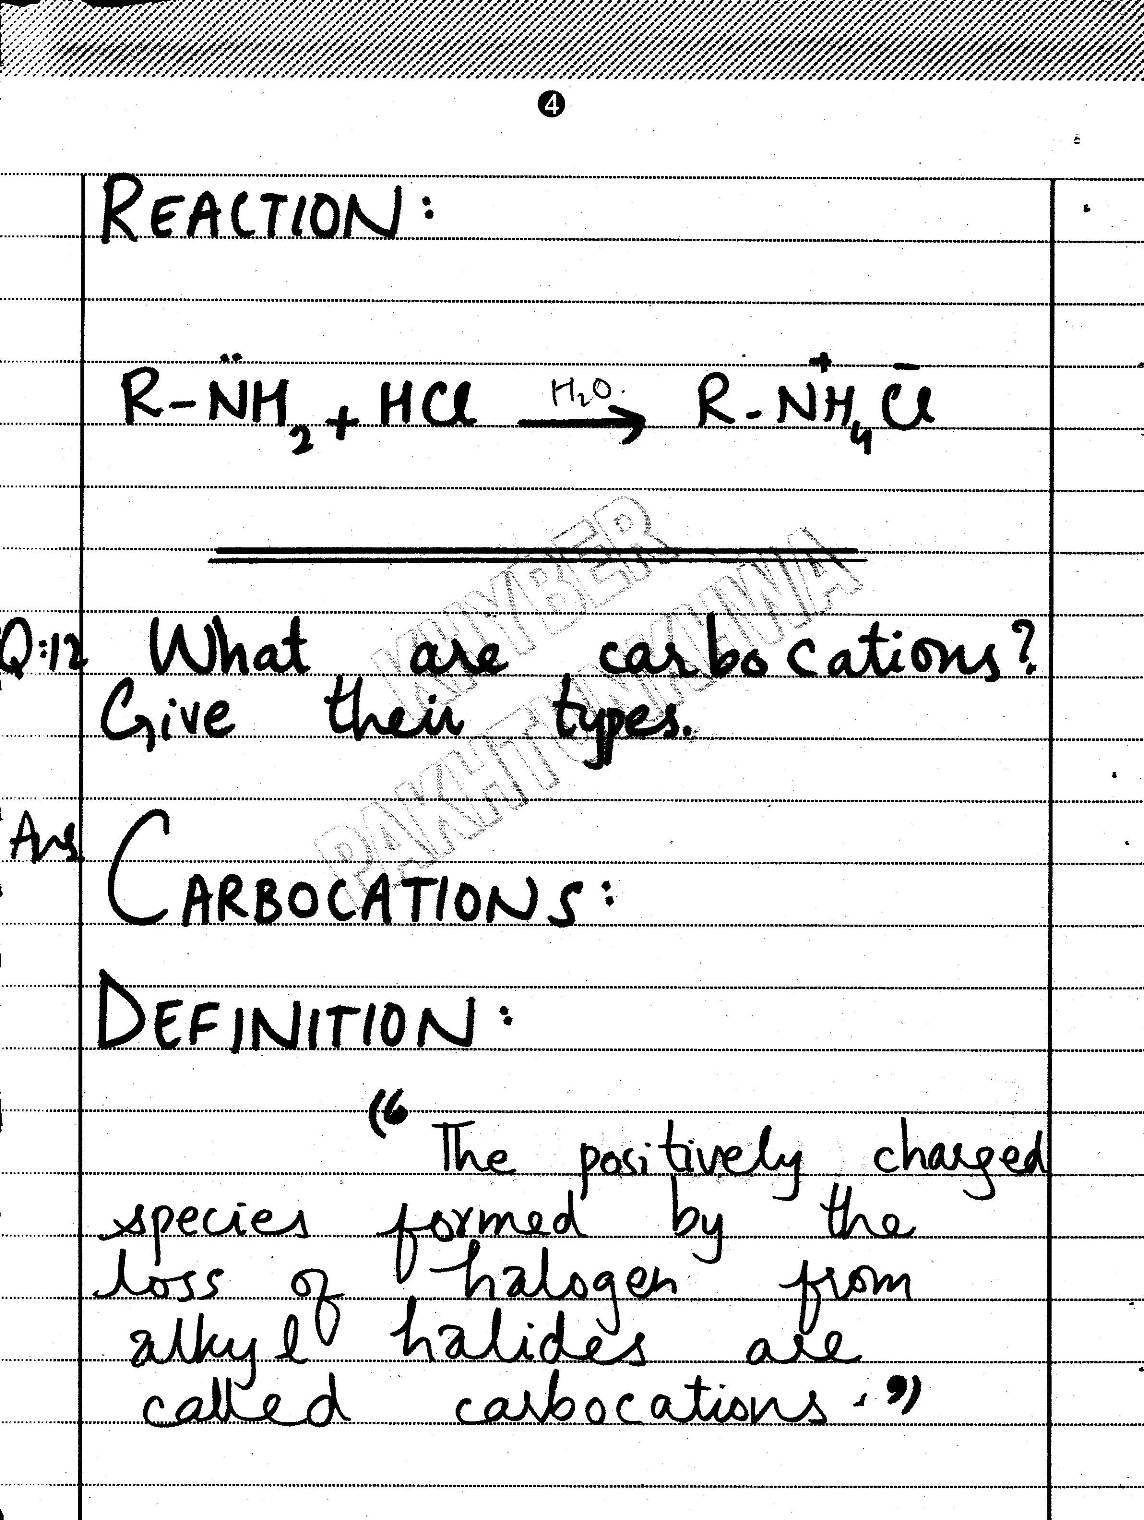 4
REACTION:
R-N̈H₂ + HCl H₂O. → R-N⁺H₄ C̄l
KHYBER
PAKHTUNKHWA
Q:12 What are carbocations?
Give their types.
Ans.
CARBOCATIONS:
DEFINITION:
“The positively charged
species formed by the
loss of halogen from
alkyl halides are
called carbocations.”